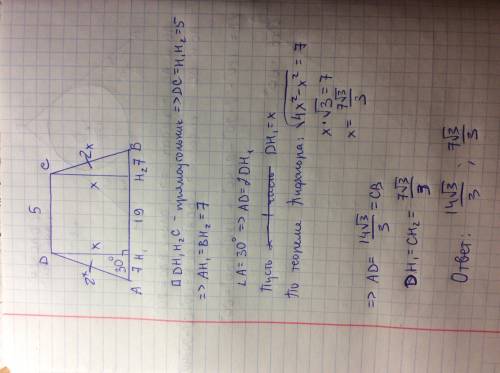 D 5 C
2x x x 2x
30°
A 7 H₁ 19 H₂ 7 B
□DH₁H₂C – прямоугольник => DC=H₁H₂=5
=> AH₁=BH₂=7
∠A=30° => AD=2DH₁
Пусть DH₁=x
По теореме Пифагора: √4x²-x² = 7
x·√3=7
x= 7√3/3
=> AD= 14√3/3 =CB
DH₁=CH₂= 7√3/3
Ответ: 14√3/3 ; 7√3/3